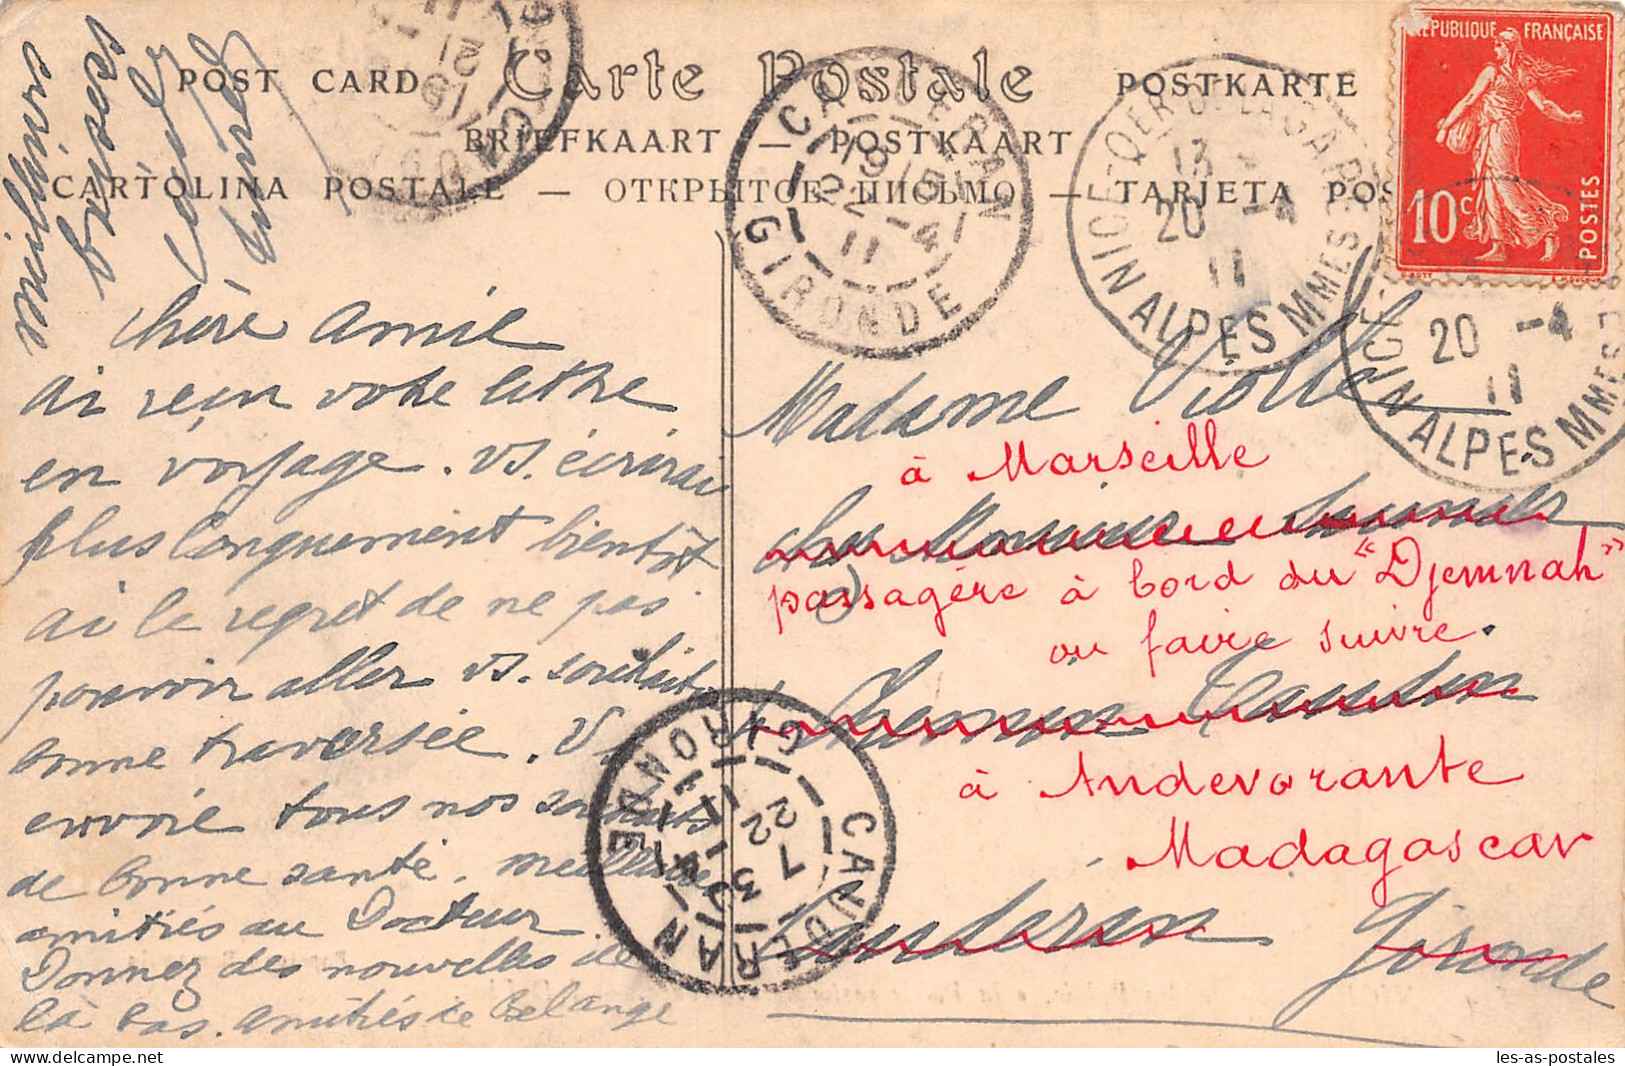 POST CARD Carte Postale POSTKARTE
BRIEFKAART — POSTKAART
CARTOLINA POSTALE — ОТКРЫТОЕ ПИСЬМО — TARJETA POS
RÉPUBLIQUE FRANÇAISE
10c
POSTES
CAUDERAN
19 15
22 -4
11
GIRONDE
NICE-QER DE LA GARE
13
20 -4
11
ALPES MMES
20 -4
11
ALPES MMES
meilleurs
baisers
Chère Amie
ai reçu votre lettre
en voyage. vs. écrirai
plus longuement bientôt
ai le regret de ne pas
pouvoir aller vs. souhaiter
bonne traversée. Vs
envoie tous nos souhaits
de bonne santé. meilleures
amitiés au Docteur.
Donnez des nouvelles de
là bas. amitiés de Belange
Madame Violle
à Marseille
chez Monsieur
passagère à bord du "Djemnah"
ou faire suivre.
Chemin
à Andevorante
Madagascar
Cauderan Gironde
CAUDERAN
22 -4
11
GIRONDE
les-as-postales